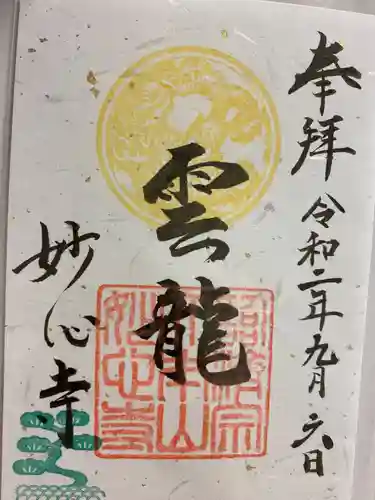 奉拝
令和二年九月六日
雲龍
妙心寺